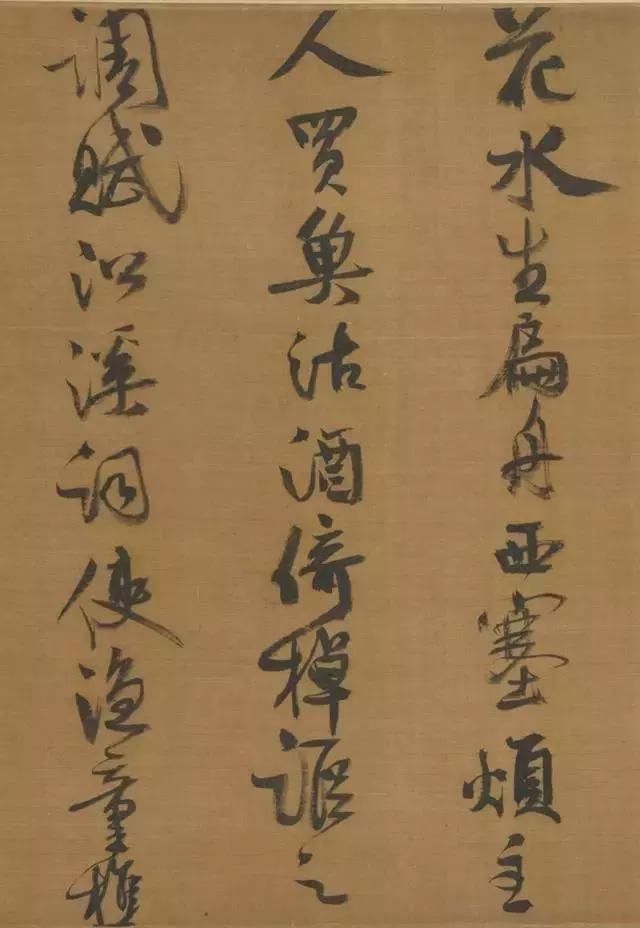 花水生扁舟西塞煩主
人買魚沽酒倚棹謳之
調賦沿溪詞使漁童樵